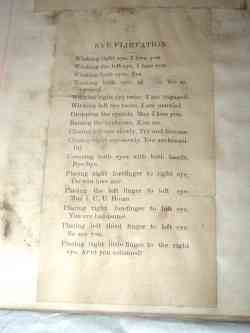 EYE FLIRTATION
Winking right eye, I love you
Winking the left eye, I hate you
Winking both eyes, Yes
Winking both eyes at
Winking right eye twice, I am engaged.
Winking left eye twice, I am married.
Drooping the eyelids, May I kiss you
Raising the eyebrows, Kiss me.
Closing left eye slowly, Try and
Closing right eye slowly, You are beauti-
ful
Covering both eyes with both hands,
Bye-bye.
Placing right forefinger to right eye,
Do you love me?
Placing the left finger to left eye
May I C. U. Home.
Placing right forefinger to left eye,
You are handsome.
Placing left third finger to left eye,
Placing right little finger to the right
eye, Aren't you ashamed?